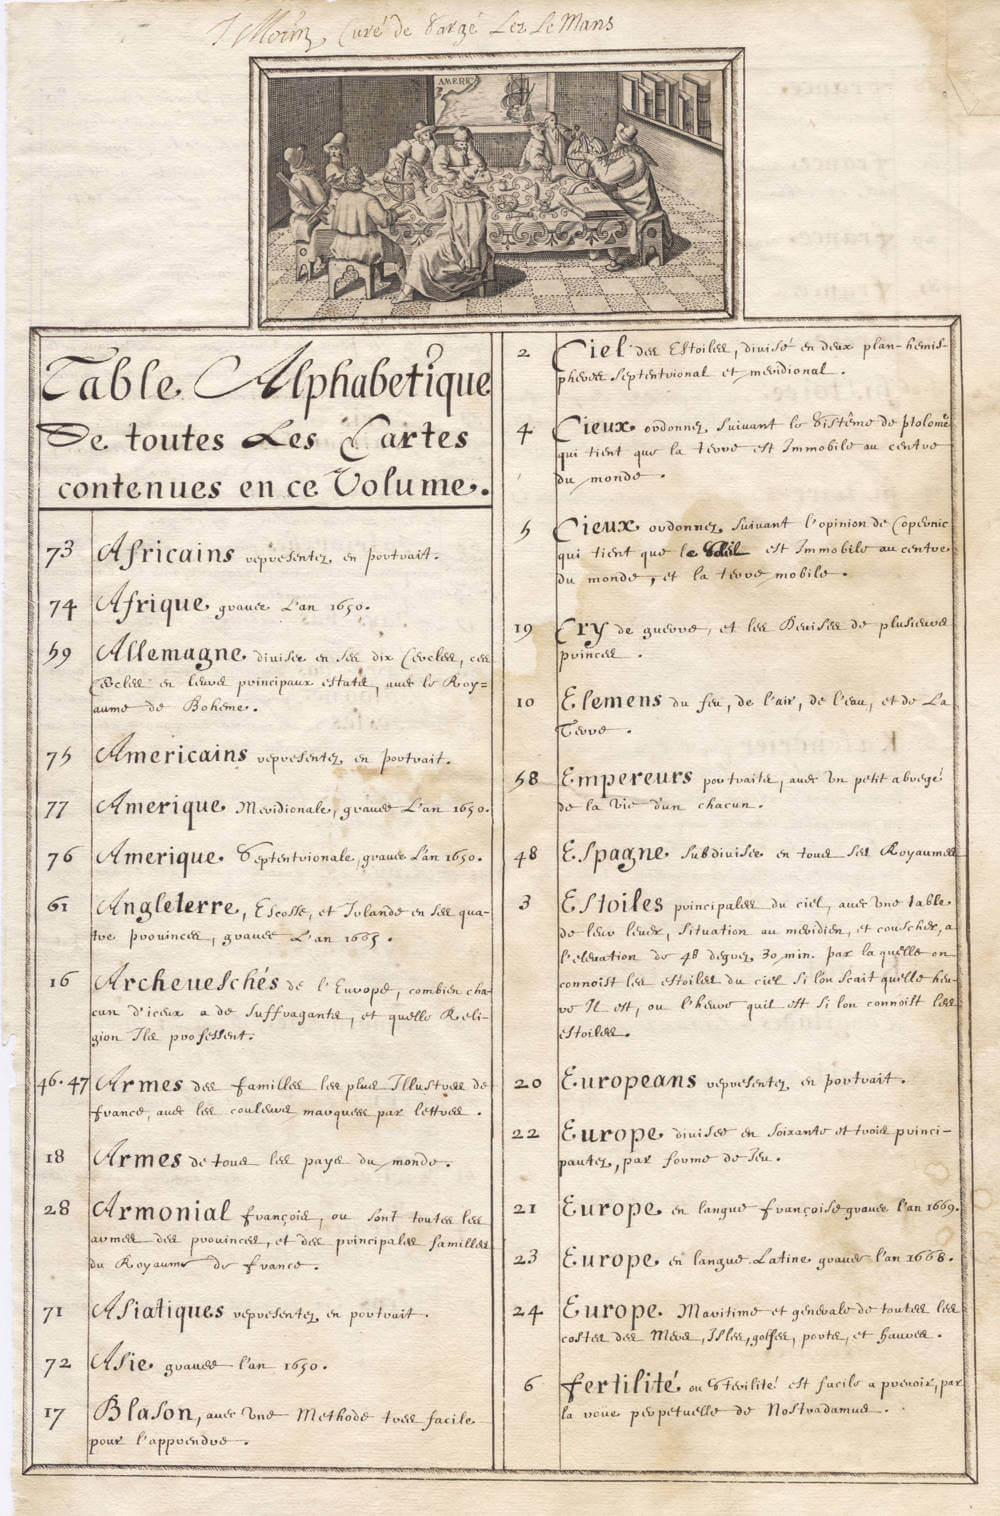 J Morin, Curé de Sargé Lez Le Mans
AMERIC
Table Alphabetique
De toutes Les Cartes
contenues en ce Volume.
73 Africains representez en portrait.
74 Afrique grauee L'an 1650.
59 Allemagne divisee en ses dix Cercles, ces
Cercles en leurs principaux estats, auec le Roy=
aume de Boheme.
75 Americains representez en portrait.
77 Amerique Meridionale, grauee L'an 1650.
76 Amerique Septentrionale, grauee L'an 1650.
61 Angleterre, Escosse, et Irlande en ses qua-
tre prouinces, grauee L'an 1665.
16 Archeueschés de l'Europe, combien cha-
cun d'iceux a de suffragants, et quelle Reli-
gion Ils professent.
46.47 Armes des familles les plus Illustres de
france, auec les couleurs marquees par lettres.
18 Armes de tous les pays du monde.
28 Armonial françois, ou sont toutes les
armes des prouinces, et des principales familles
du Royaume de france.
71 Asiatiques representez en portrait.
72 Asie grauee l'an 1650.
17 Blason, auec une Methode tres facile
pour l'apprendre.
2 Ciel des Estoiles, divisé en deux plan-hemis-
pheres septentrional et meridional.
4 Cieux ordonnez suivant le Sistême de ptolomé
qui tient que la terre est Immobile au centre
du monde.
5 Cieux ordonnez suivant l'opinion de Copernic
qui tient que le Soleil est Immobile au centre
du monde, et la terre mobile.
19 Cry de guerre, et les Deuises de plusieurs
princes.
10 Elemens du feu, de l'air, de l'eau, et de La
Terre.
58 Empereurs portraits, auec un petit abregé
de la Vie d'un chacun.
48 Espagne subdivisee en tous ses Royaumes
3 Estoiles principales du ciel, auec une table
de leur leuer, situation au meridien, et couscher, a
l'eleuation de 48 degrez 30 min. par laquelle on
connoist les estoiles du ciel si l'on scait quelle heu-
re Il est, ou l'heure quil est si lon connoist les
estoiles.
20 Europeans representez en portrait.
22 Europe divisee en soixante et trois princi-
pautez, par forme de Jeu.
21 Europe en langue françoise grauee l'an 1669.
23 Europe en langue Latine grauee l'an 1668.
24 Europe Maritime et generale de toutes les
costes des Mers, Isles, golfes, ports, et haures.
6 fertilité ou Sterilité est facile a preuoir, par
la roüe perpetuelle de Nostradamus.